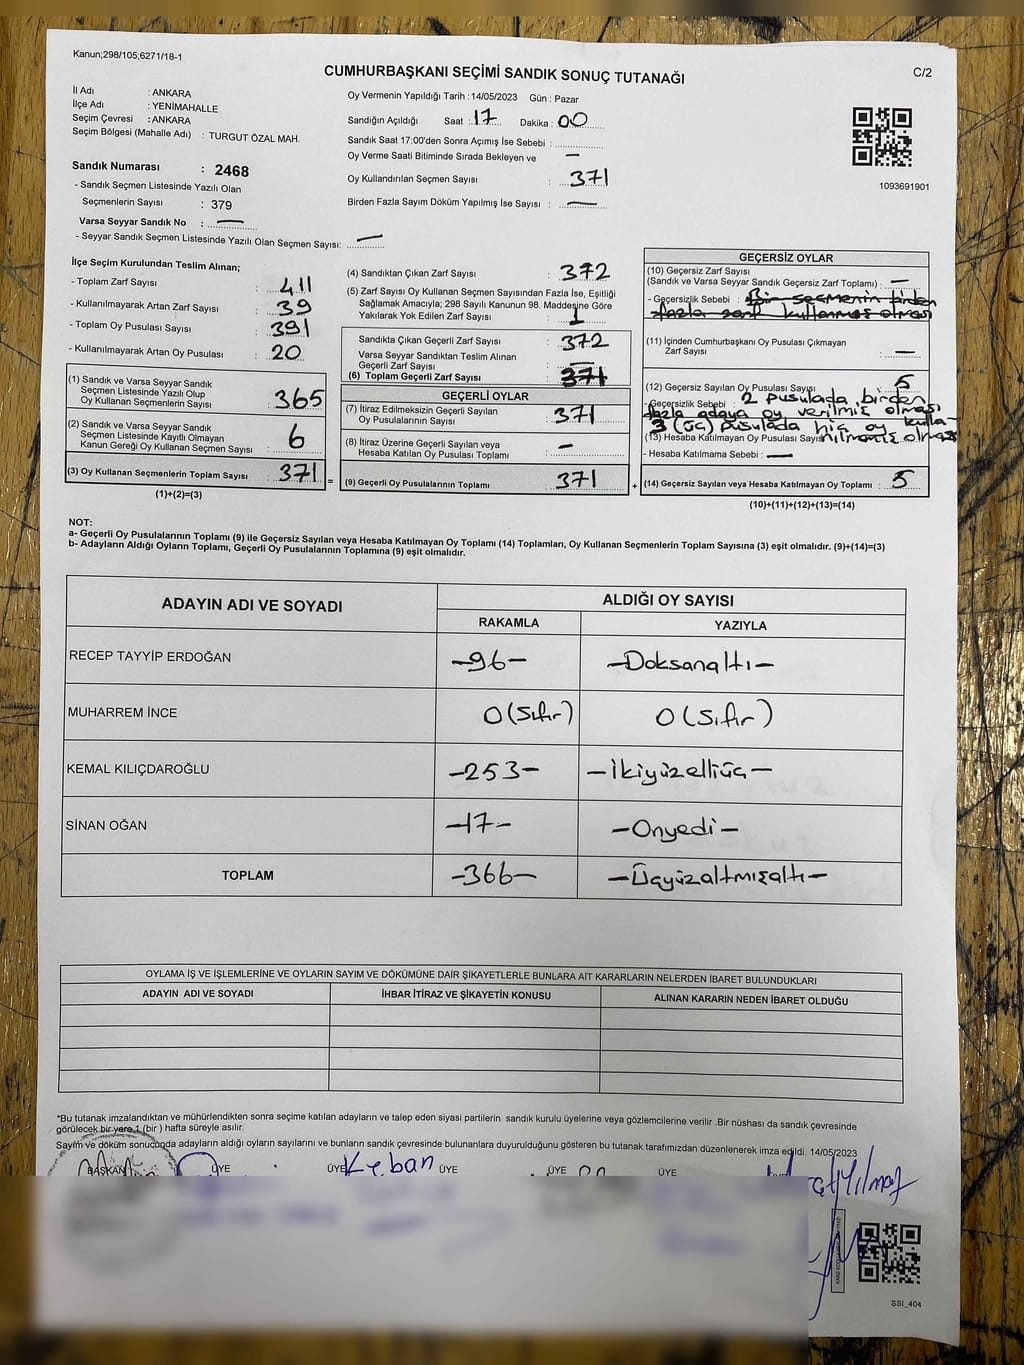 Kanun;298/105;6271/18-1
CUMHURBAŞKANI SEÇİMİ SANDIK SONUÇ TUTANAĞI
C/2
İl Adı : ANKARA
İlçe Adı : YENİMAHALLE
Seçim Çevresi : ANKARA
Seçim Bölgesi (Mahalle Adı) : TURGUT ÖZAL MAH.
Sandık Numarası : 2468
- Sandık Seçmen Listesinde Yazılı Olan
Seçmenlerin Sayısı : 379
Varsa Seyyar Sandık No : —
- Seyyar Sandık Seçmen Listesinde Yazılı Olan Seçmen Sayısı: —
Oy Vermenin Yapıldığı Tarih : 14/05/2023 Gün : Pazar
Sandığın Açıldığı Saat : 17 Dakika : 00
Sandık Saat 17:00'den Sonra Açımış İse Sebebi :
Oy Verme Saati Bitiminde Sırada Bekleyen ve —
Oy Kullandırılan Seçmen Sayısı : 371
Birden Fazla Sayım Döküm Yapılmış İse Sayısı : —
1093691901
İlçe Seçim Kurulundan Teslim Alınan;
- Toplam Zarf Sayısı : 411
- Kullanılmayarak Artan Zarf Sayısı : 39
- Toplam Oy Pusulası Sayısı : 391
- Kullanılmayarak Artan Oy Pusulası : 20
(1) Sandık ve Varsa Seyyar Sandık
Seçmen Listesinde Yazılı Olup
Oy Kullanan Seçmenlerin Sayısı : 365
(2) Sandık ve Varsa Seyyar Sandık
Seçmen Listesinde Kayıtlı Olmayan
Kanun Gereği Oy Kullanan Seçmen Sayısı : 6
(3) Oy Kullanan Seçmenlerin Toplam Sayısı : 371 =
(1)+(2)=(3)
(4) Sandıktan Çıkan Zarf Sayısı : 372
(5) Zarf Sayısı Oy Kullanan Seçmen Sayısından Fazla İse, Eşitliği
Sağlamak Amacıyla; 298 Sayılı Kanunun 98. Maddesine Göre
Yakılarak Yok Edilen Zarf Sayısı : 1
Sandıkta Çıkan Geçerli Zarf Sayısı : 372
Varsa Seyyar Sandıktan Teslim Alınan
Geçerli Zarf Sayısı : —
(6) Toplam Geçerli Zarf Sayısı : 371
GEÇERLİ OYLAR
(7) İtiraz Edilmeksizin Geçerli Sayılan
Oy Pusulalarının Sayısı : 371
(8) İtiraz Üzerine Geçerli Sayılan veya
Hesaba Katılan Oy Pusulası Toplamı : —
(9) Geçerli Oy Pusulalarının Toplamı : 371 +
GEÇERSİZ OYLAR
(10) Geçersiz Zarf Sayısı
(Sandık ve Varsa Seyyar Sandık Geçersiz Zarf Toplamı) : —
- Geçersizlik Sebebi : Bir seçmenin birden
fazla zarf kullanmış olması
(11) İçinden Cumhurbaşkanı Oy Pusulası Çıkmayan
Zarf Sayısı : —
(12) Geçersiz Sayılan Oy Pusulası Sayısı : 5
- Geçersizlik Sebebi : 2 pusulada birden
fazla adaya oy verilmiş olması
3 (üç) pusulada hiç oy kulla-
(13) Hesaba Katılmayan Oy Pusulası Sayısı nılmamış olması
- Hesaba Katılmama Sebebi : —
(14) Geçersiz Sayılan veya Hesaba Katılmayan Oy Toplamı : 5
(10)+(11)+(12)+(13)=(14)
NOT:
a- Geçerli Oy Pusulalarının Toplamı (9) ile Geçersiz Sayılan veya Hesaba Katılmayan Oy Toplamı (14) Toplamları, Oy Kullanan Seçmenlerin Toplam Sayısına (3) eşit olmalıdır. (9)+(14)=(3)
b- Adayların Aldığı Oyların Toplamı, Geçerli Oy Pusulalarının Toplamına (9) eşit olmalıdır.
ADAYIN ADI VE SOYADI ALDIĞI OY SAYISI
RAKAMLA YAZIYLA
RECEP TAYYİP ERDOĞAN -96- -Doksanaltı-
MUHARREM İNCE 0 (Sıfır) 0 (Sıfır)
KEMAL KILIÇDAROĞLU -253- -İkiyüzelliüç-
SİNAN OĞAN -17- -Onyedi-
TOPLAM -366- -Üçyüzaltmışaltı-
OYLAMA İŞ VE İŞLEMLERİNE VE OYLARIN SAYIM VE DÖKÜMÜNE DAİR ŞİKAYETLERLE BUNLARA AİT KARARLARIN NELERDEN İBARET BULUNDUKLARI
ADAYIN ADI VE SOYADI İHBAR İTİRAZ VE ŞİKAYETİN KONUSU ALINAN KARARIN NEDEN İBARET OLDUĞU
*Bu tutanak imzalandıktan ve mühürlendikten sonra seçime katılan adayların ve talep eden siyasi partilerin sandık kurulu üyelerine veya gözlemcilerine verilir .Bir nüshası da sandık çevresinde
görülecek bir yere 1 (bir ) hafta süreyle asılır.
Sayım ve döküm sonucunda adayların aldığı oyların sayılarını ve bunların sandık çevresinde bulunanlara duyurulduğunu gösteren bu tutanak tarafımızdan düzenlenerek imza edildi. 14/05/2023
BAŞKAN ÜYE ÜYE Keban ÜYE ÜYE ÜYE Yılmaz
SSI_404